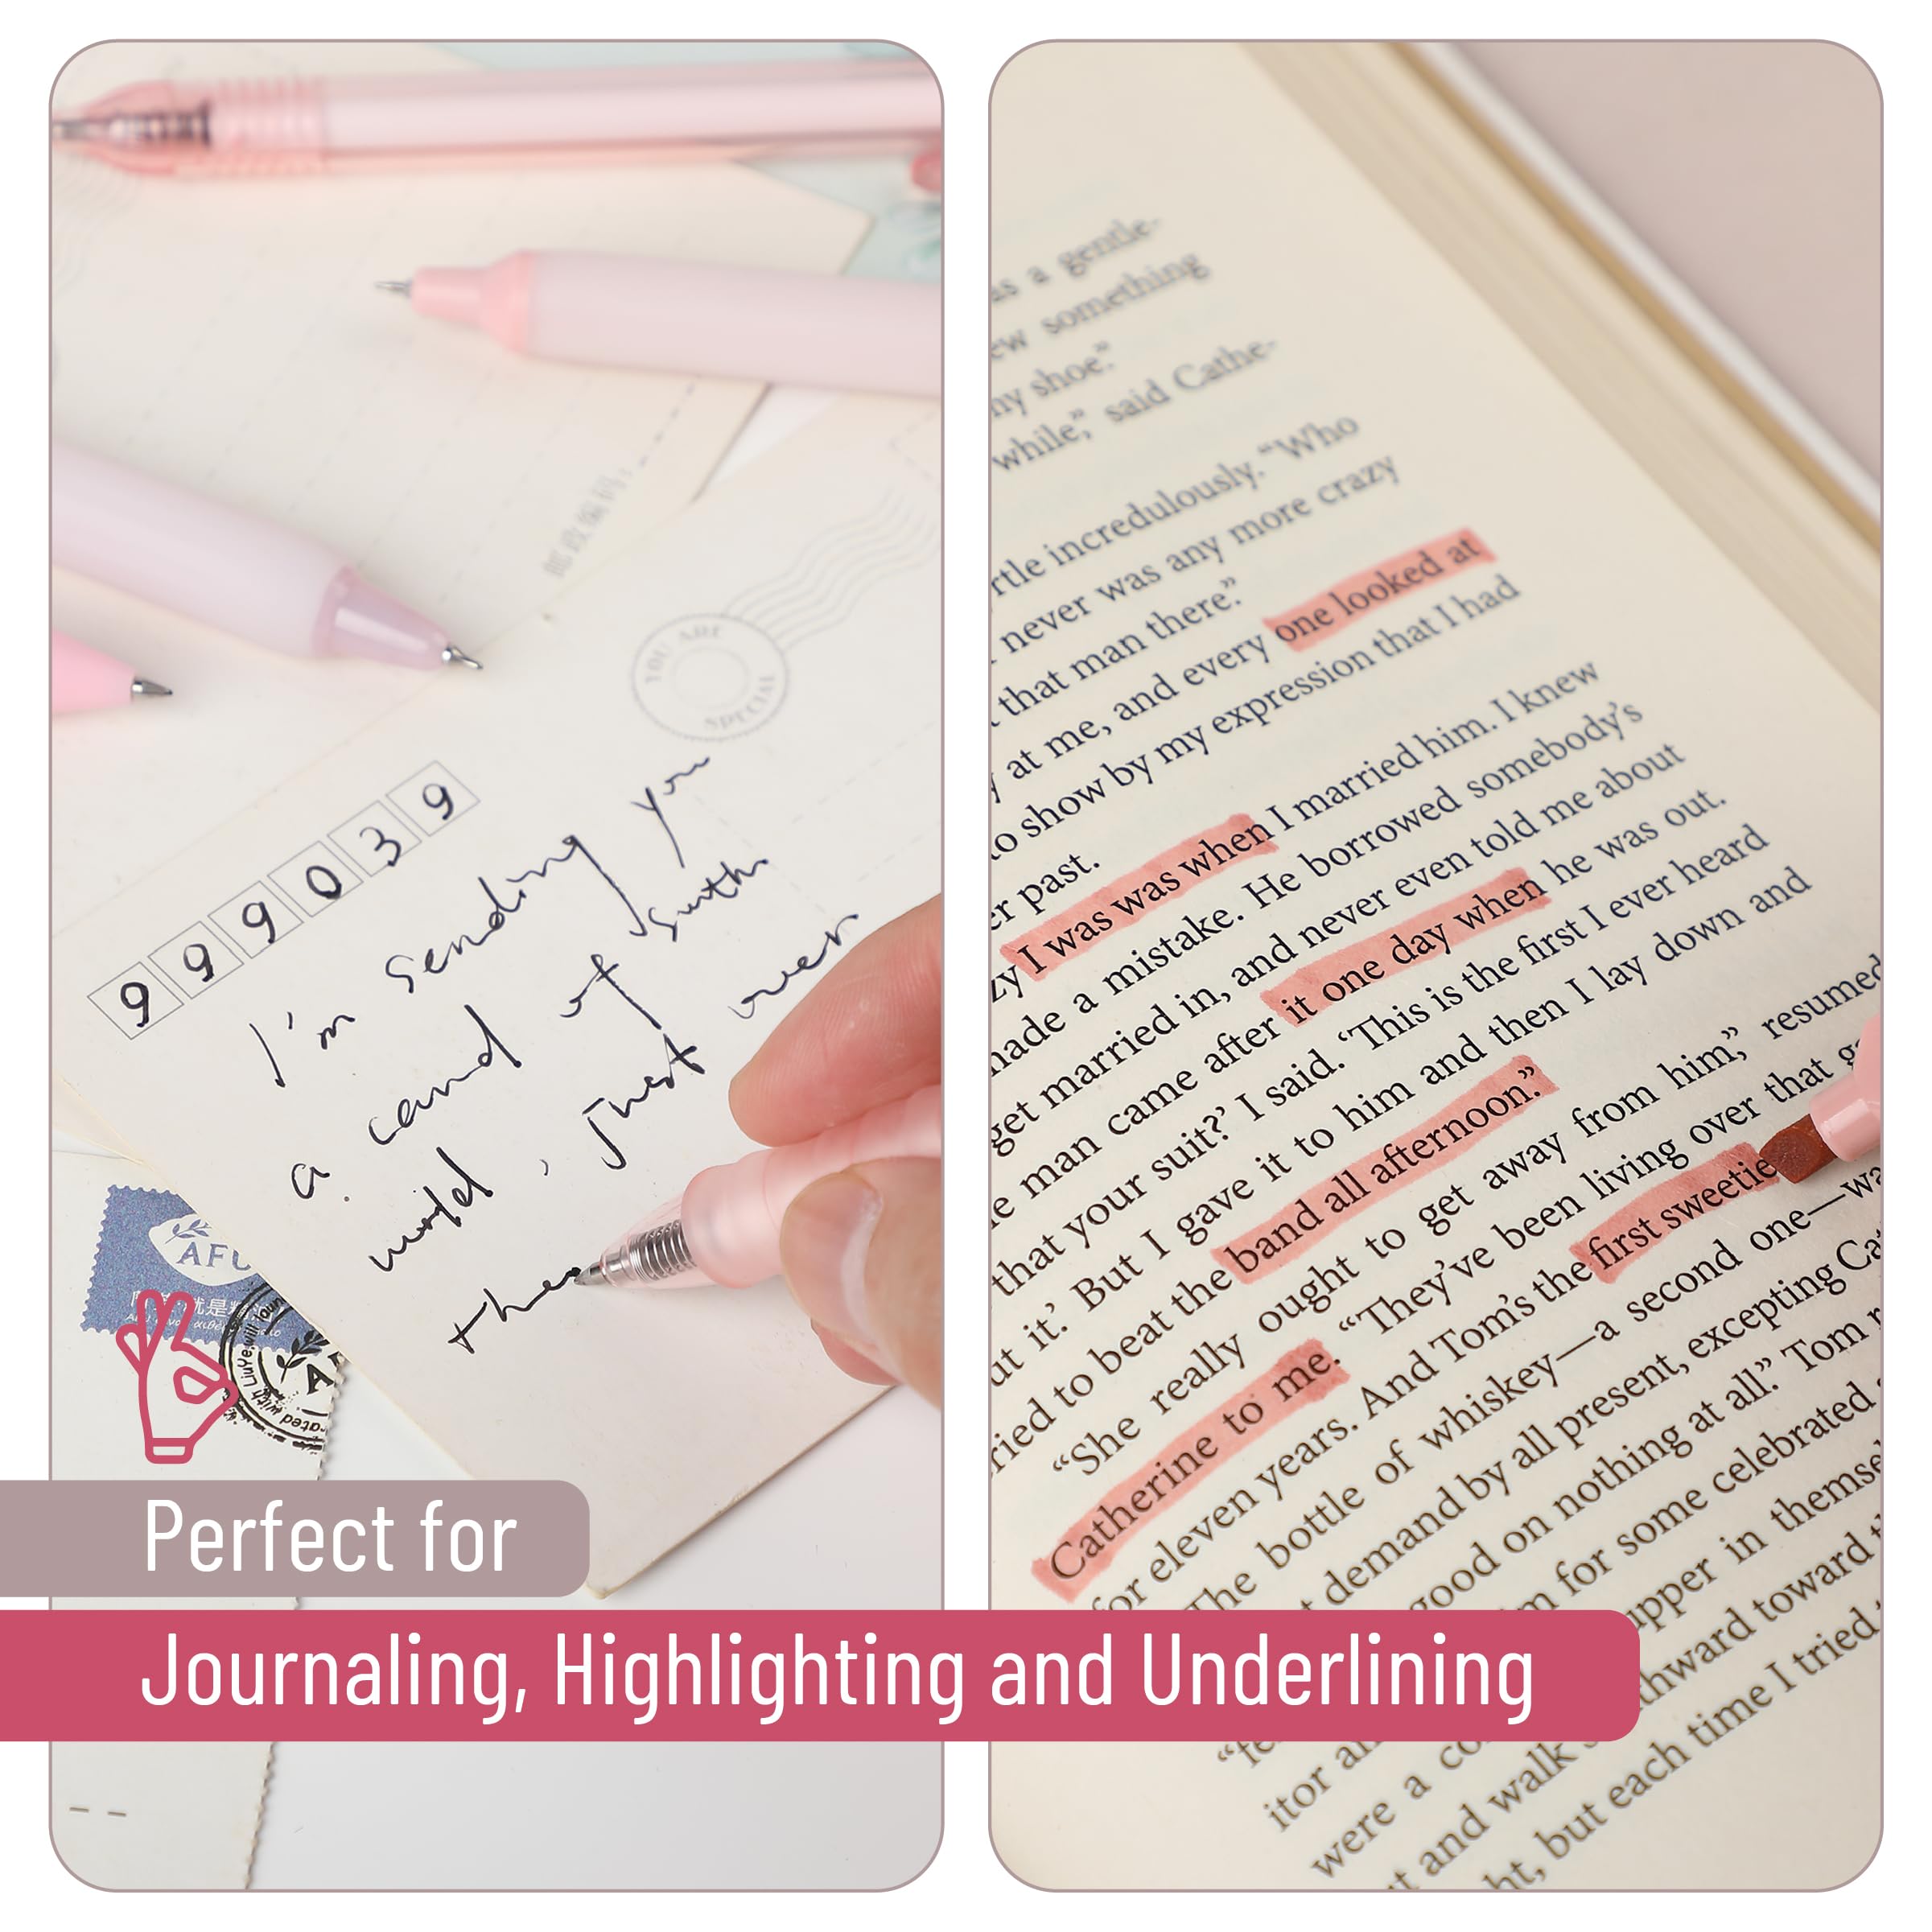 邮政编码:
YOU ARE
SPECIAL
9 9 9 0 3 9
I'm sending you
a card of
world, Just over
the
AFU
Perfect for
Journaling, Highlighting and Underlining
as a gentle-
ew something
ny shoe.”
while,” said Cathe-
rtle incredulously. “Who
never was any more crazy
that man there.”
y at me, and every one looked at
to show by my expression that I had
er past.
zy I was was when I married him. I knew
made a mistake. He borrowed somebody’s
get married in, and never even told me about
e man came after it one day when he was out.
that your suit?’ I said. ‘This is the first I ever heard
ut it.’ But I gave it to him and then I lay down and
ried to beat the band all afternoon.”
“She really ought to get away from him,” resumed
Catherine to me. “They’ve been living over that
for eleven years. And Tom’s the first sweetie
The bottle of whiskey—a second one—wa
t demand by all present, excepting Ca
good on nothing at all.” Tom
m for some celebrated
upper in themse
thward toward
“fe
itor an
were a co
t and walk
ht, but each time I tried